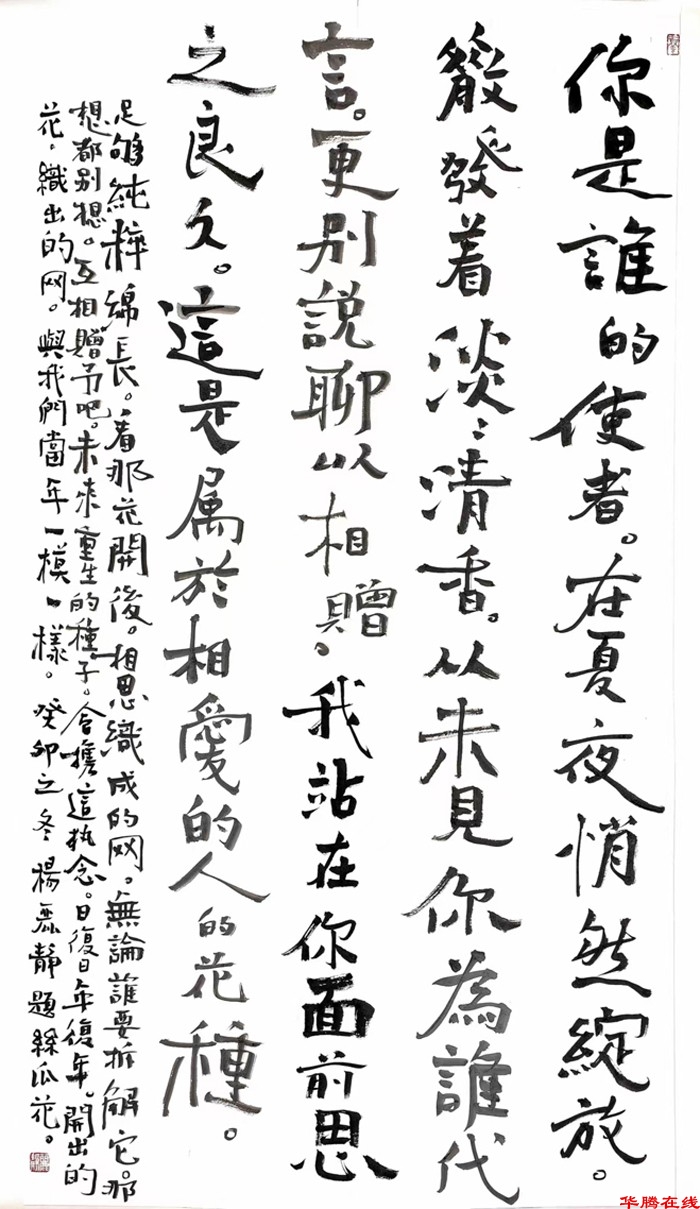 你是誰的使者。在夏夜悄然綻放。
散發着淡〻清香。从未見你為誰代
言。更别說聊以相贈。我站在你面前思
之良久。這是属於相愛的人的花種。
足够純粹綿長。看那花開後。相思織成的网。無論誰要拆解它。那
想都别想。互相贈予吧。未來重生的種子。会攜這执念。日復日年復年。開出的
花。織出的网。與我們當年一模一樣。癸卯之冬楊麗靜題絲瓜花。
华腾在线